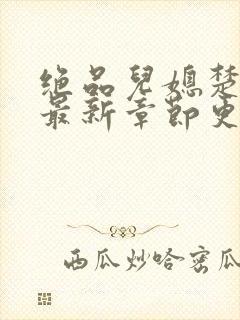 绝品兒媳楚
最新章節更
西瓜炒哈密瓜